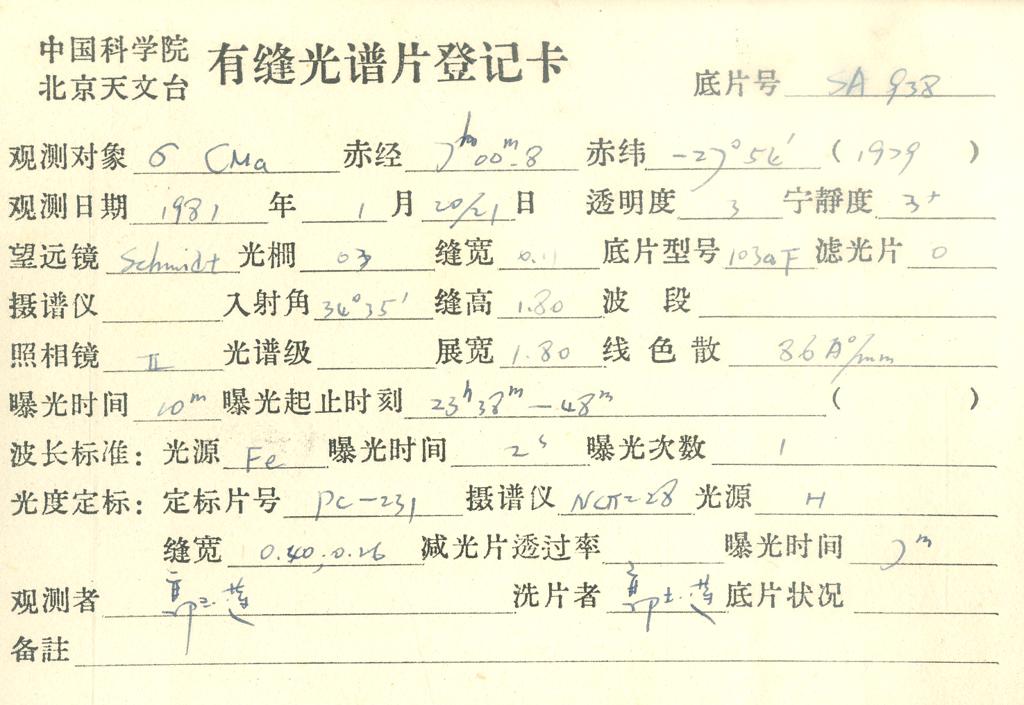 中国科学院
北京天文台
有缝光谱片登记卡
底片号 SA 938
观测对象 σ CMa 赤经 7ʰ00ᵐ.8 赤纬 -27°54′ (1979)
观测日期 1981 年 1 月 20/21 日 透明度 3 宁静度 3⁺
望远镜 Schmidt 光栏 03 缝宽 0.11 底片型号 103aF 滤光片 0
摄谱仪 入射角 34°35′ 缝高 1.80 波 段
照相镜 II 光谱级 展宽 1.80 线色散 86 A°/mm
曝光时间 10ᵐ 曝光起止时刻 23ʰ38ᵐ—48ᵐ ( )
波长标准: 光源 Fe 曝光时间 2ˢ 曝光次数 1
光度定标: 定标片号 PC-231 摄谱仪 光源 H
缝宽 0.40, 0.26 减光片透过率 曝光时间 7ᵐ
观测者 郭玉莲 洗片者 郭玉莲 底片状况
备註